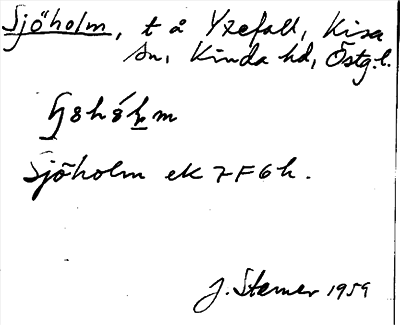 Sjöholm, t å Yxefall, Kisa
sn, Kinda hd, Östg.l.
Sjöholm ek 7F6h.
J. Stemer 1959